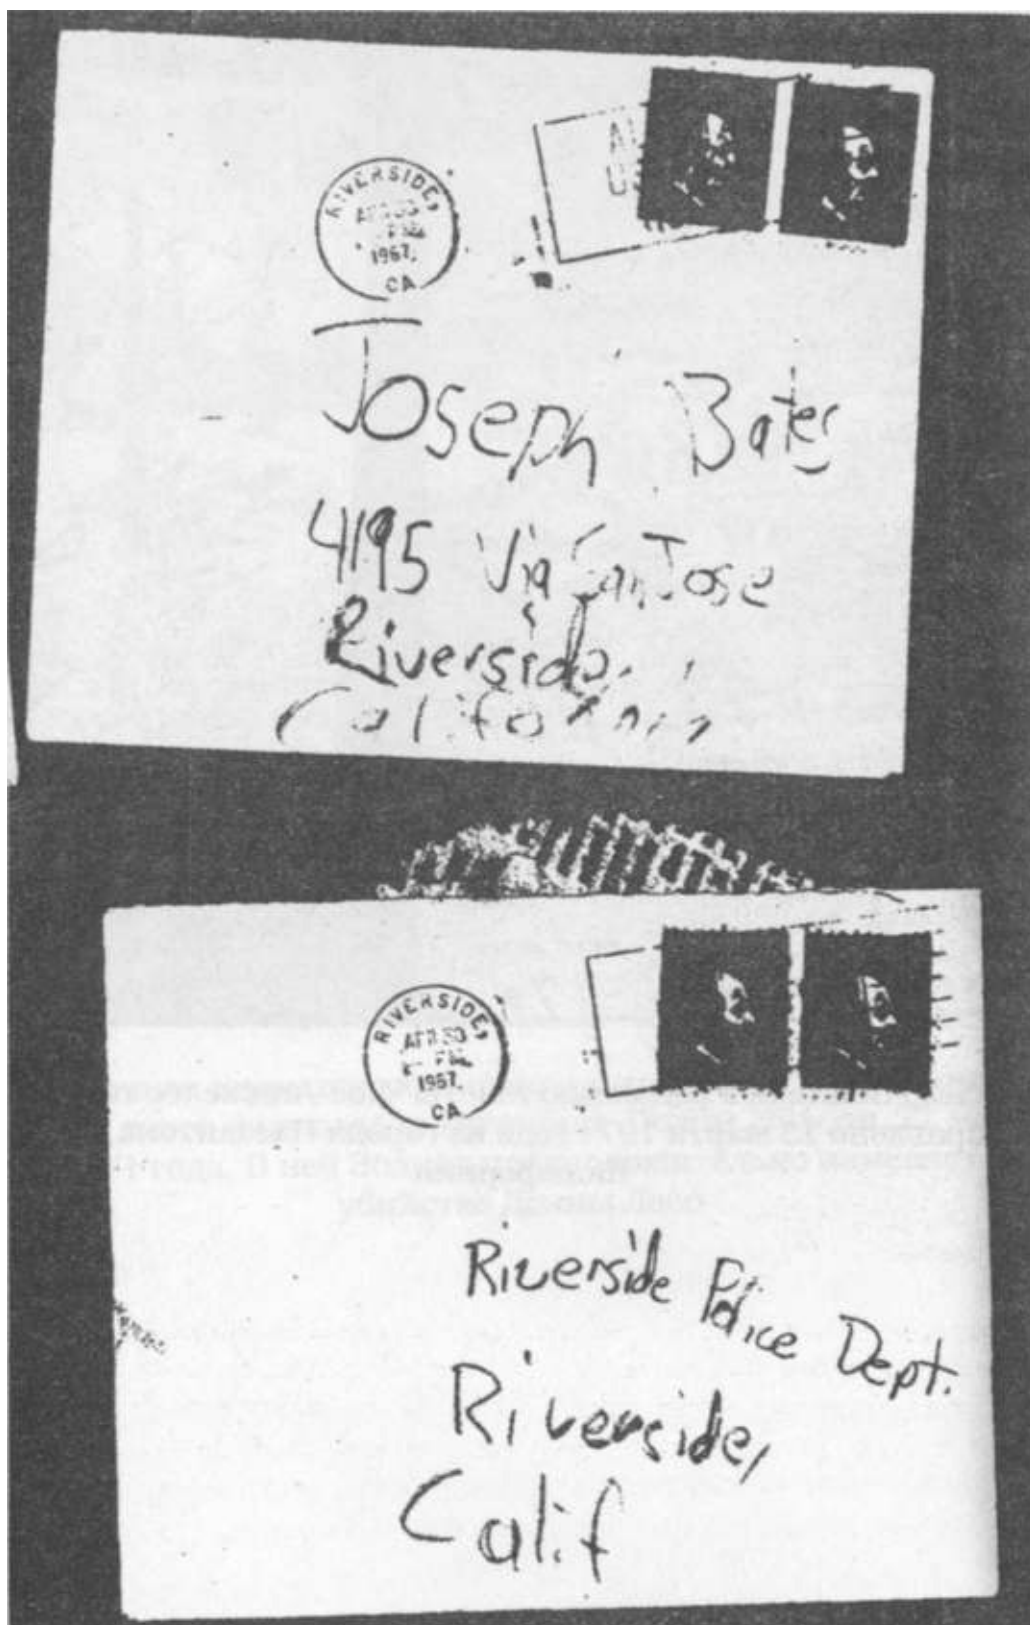 RIVERSIDE,
APR 30
PM
1967
CA
Joseph Bates
4195 Via San Jose
Riverside,
California
RIVERSIDE,
APR 30
PM
1967
CA
Riverside Police Dept.
Riverside,
Calif